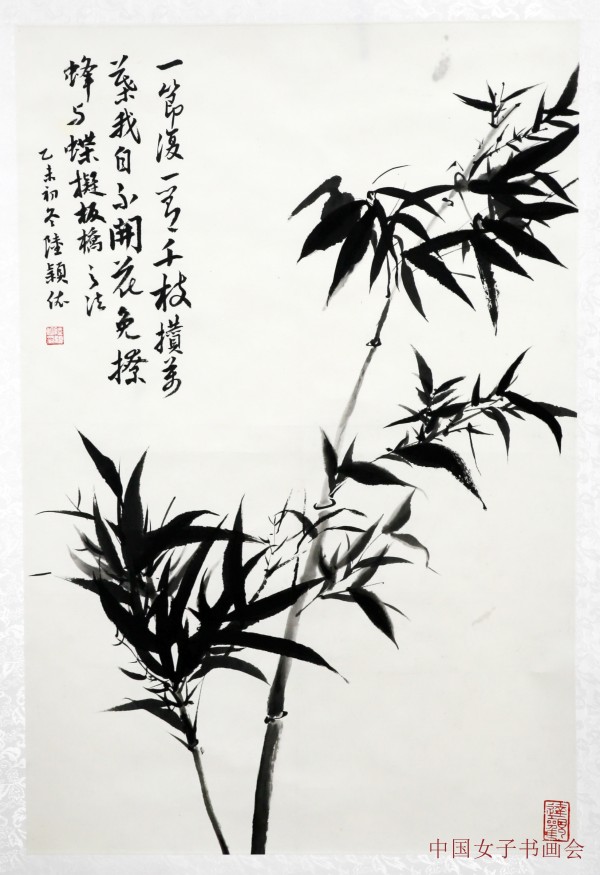 一節復一節千枝攢萬
葉我自不開花免撩
蜂与蝶擬板橋之法
乙未初冬陸穎
中国女子书画会